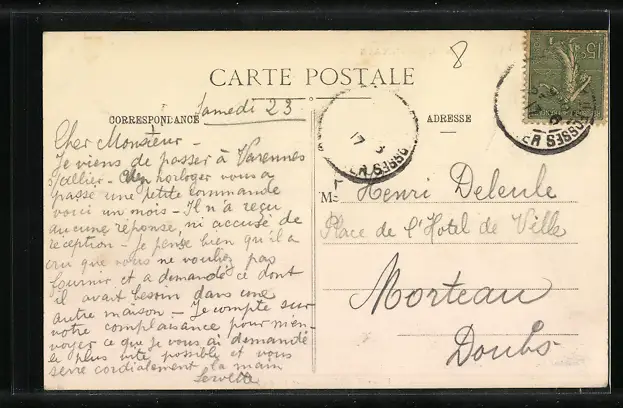 8
15c
CARTE POSTALE
CORRESPONDANCE
ADRESSE
Samedi 23
17 3
OSSES
Cher Monsieur -
Je viens de passer à Varennes
s/allier - Un horloger vous a
passé une petite commande
voici un mois - Il n'a reçu
aucune réponse, ni accusé de
réception - Je pense bien qu'il a
cru que vous ne vouliez pas
fournir et a demandé ce dont
il avait besoin dans une
autre maison - Je compte sur
votre complaisance pour m'en-
voyer ce que je vous ai demandé
le plus vite possible et vous
serre cordialement la main
M. Henri Deleule
Place de l'Hotel de Ville
Morteau
Doubs